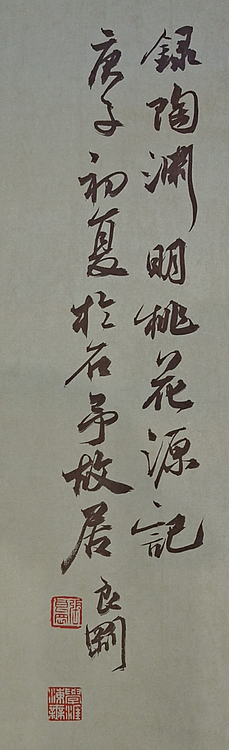 録陶淵明桃花源記
庚子初夏於石予故居 良